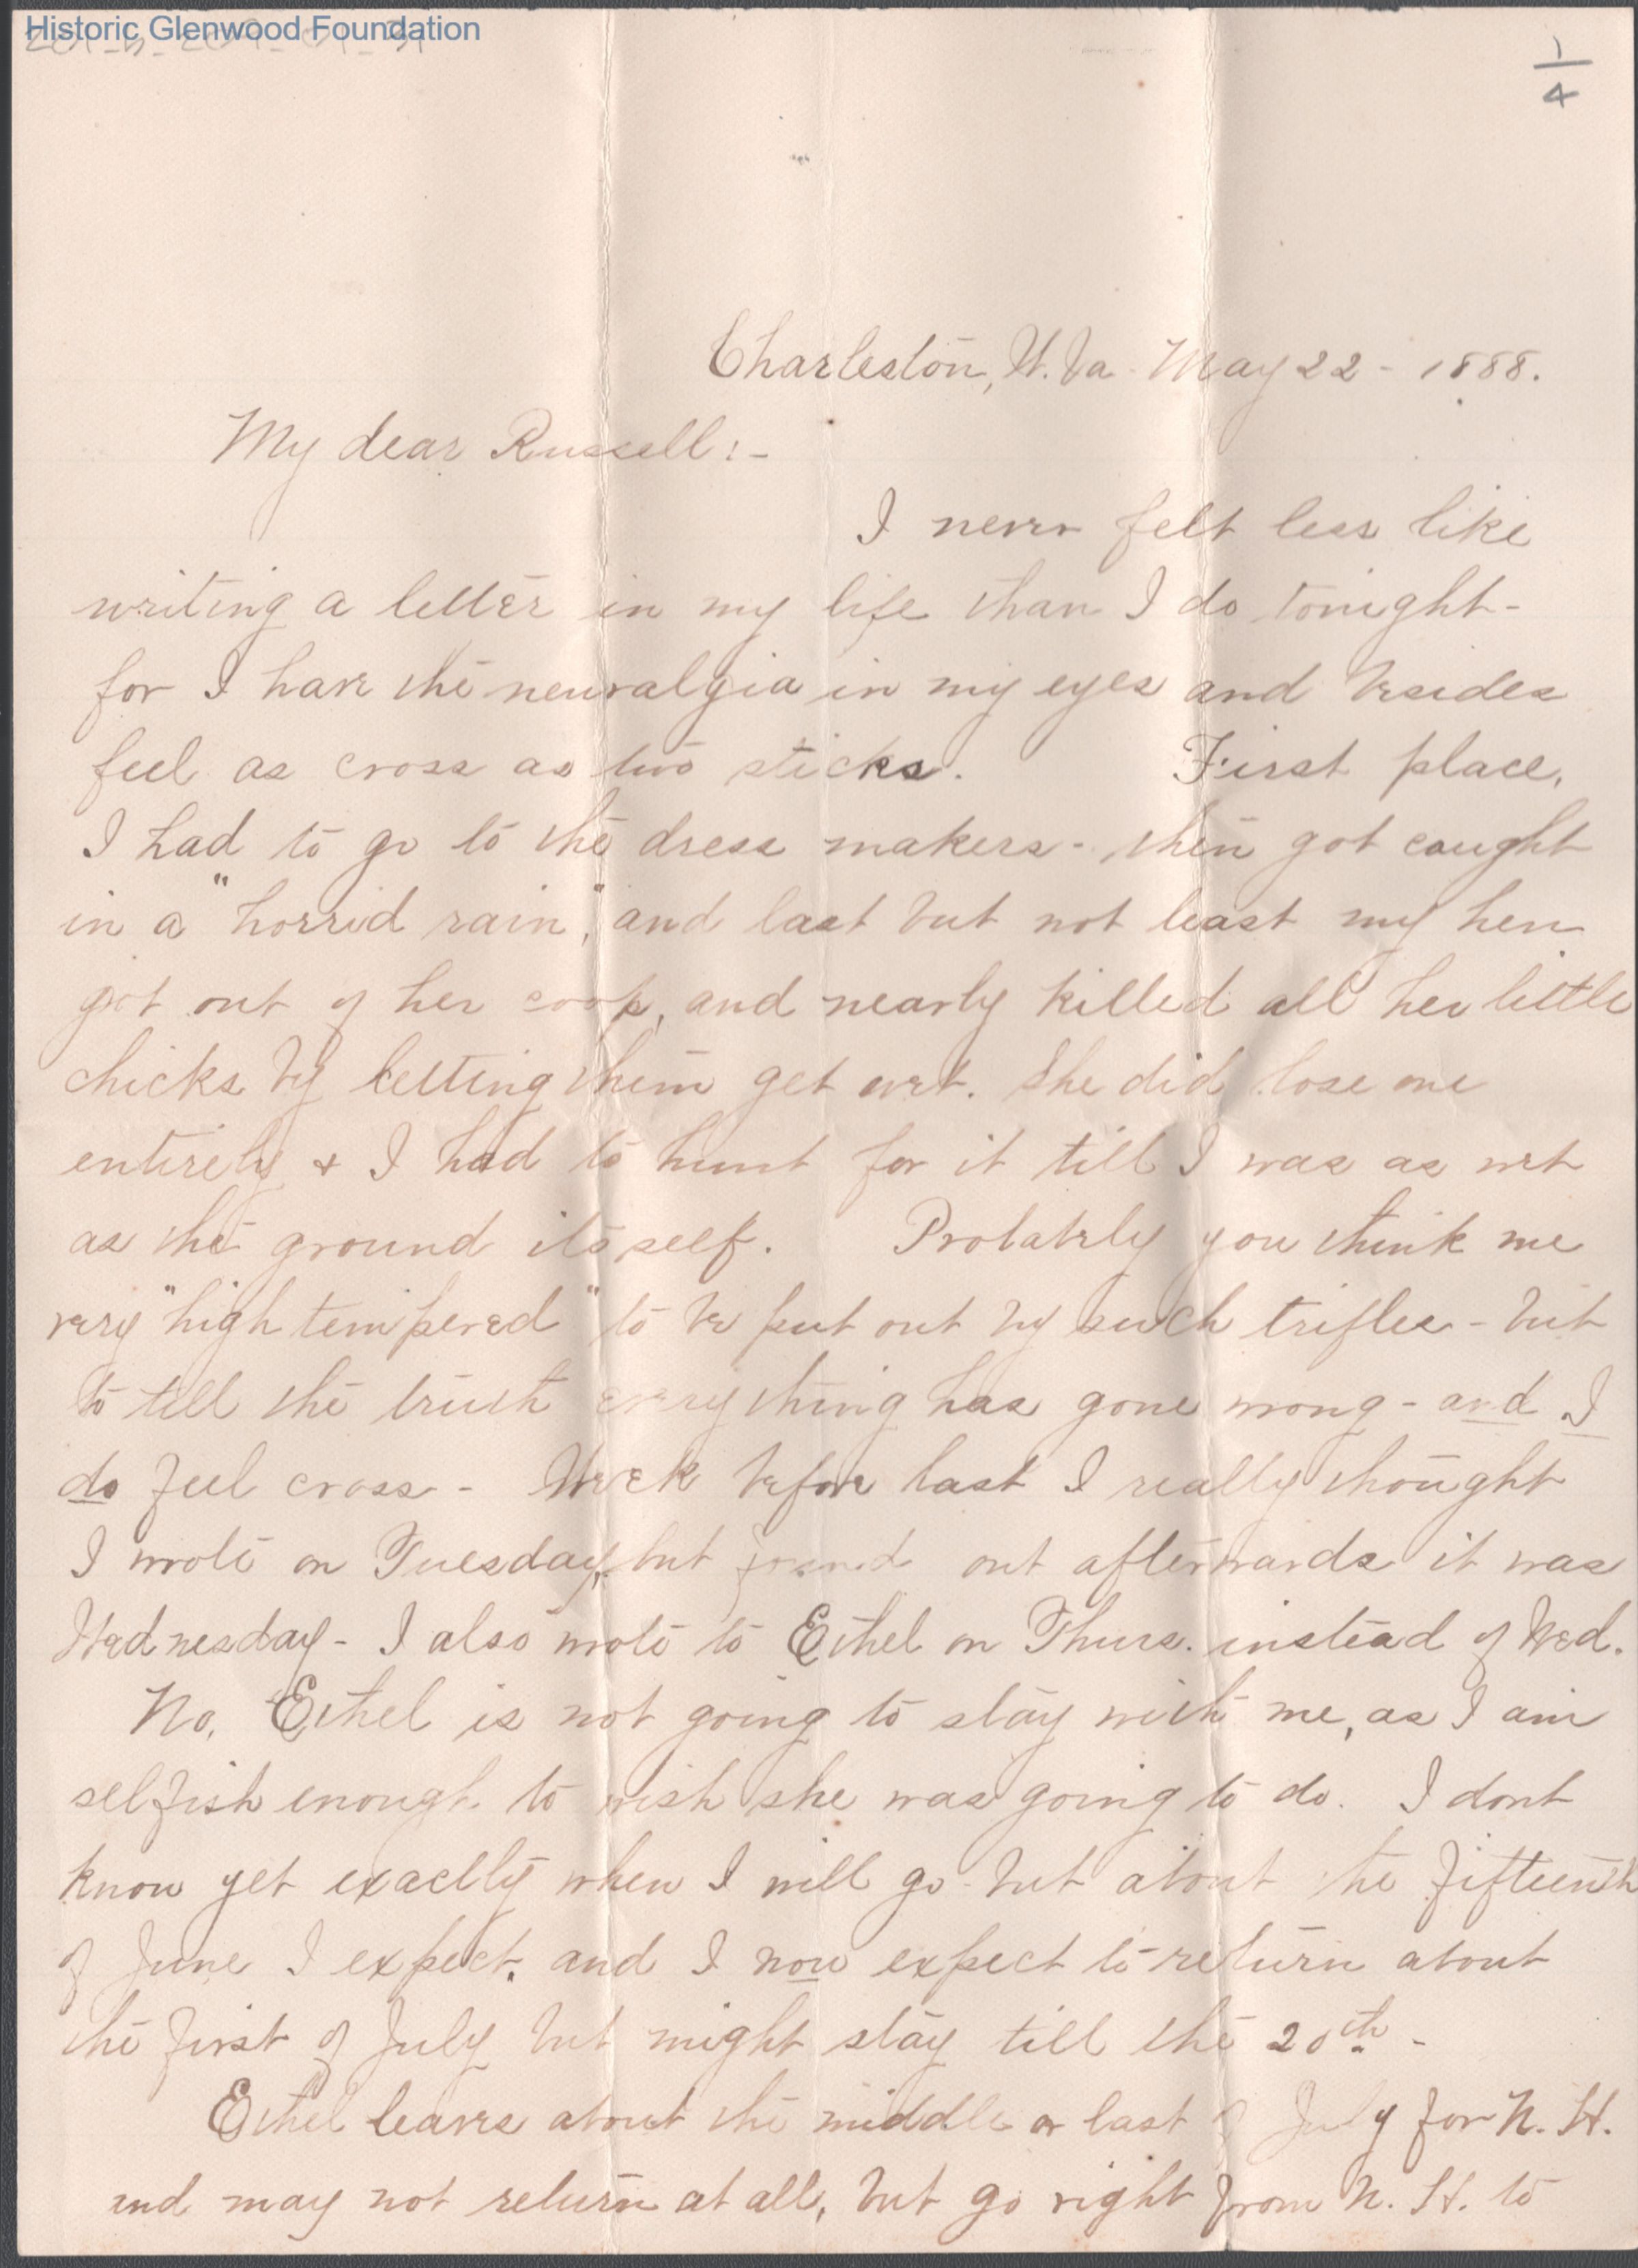 Historic Glenwood Foundation
1/4
Charleston, W. Va. May 22 - 1888.
My dear Russell:-
I never felt less like
writing a letter in my life than I do tonight-
for I have the neuralgia in my eyes and besides
feel as cross as two sticks. First place,
I had to go to the dress makers - then got caught
in a "horrid rain," and last but not least my hen
got out of her coop, and nearly killed all her little
chicks by letting them get wet. She did lose one
entirely & I had to hunt for it till I was as wet
as the ground itself. Probably you think me
very "high tempered" to be put out by such trifles - but
to tell the truth everything has gone wrong - and I
do feel cross - Week before last I really thought
I wrote on Tuesday, but found out afterwards it was
Wednesday - I also wrote to Ethel on Thurs. instead of Wed.
No, Ethel is not going to stay with me, as I am
selfish enough to wish she was going to do. I dont
know yet exactly when I will go - but about the fifteenth
of June I expect. and I now expect to return about
the first of July but might stay till the 20th -
Ethel leaves about the middle or last of July for N. H.
and may not return at all, but go right from N. H. to